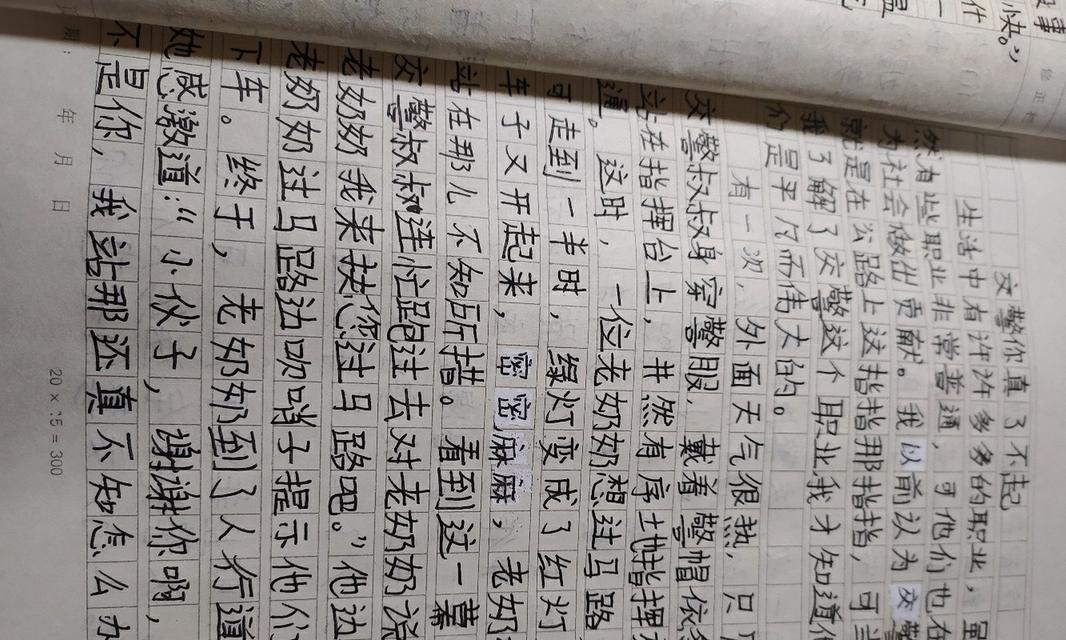 事
快。”
什
一
交警你真了不起
生活中有许许多多的职业，虽
然有些职业非常普通，可他们也在
为社会做出贡献。我以前认为交警
就是在公路上这指指那指指，可当
我了解了交警这个职业我才知道他
们是平凡而伟大的。
有一次，外面天气很热，只
交警叔叔身穿警服，戴着警帽依然
站在指挥台上，井然有序地指挥交
通。这时，一位老奶奶想过马路
可走到一半时，绿灯变成了红灯
车子又开起来，密密麻麻，老奶
站在那儿不知所措。看到这一幕
交警叔叔连忙跑过去对老奶奶说
老奶奶我来扶您过马路吧。”他边
老奶奶过马路边吹哨子提示他们
下车。终于，老奶奶到了人行道
她感激道：“小伙子，谢谢你啊，
不是你，我站那还真不知怎么办
期： 年 月 日
20×15=300